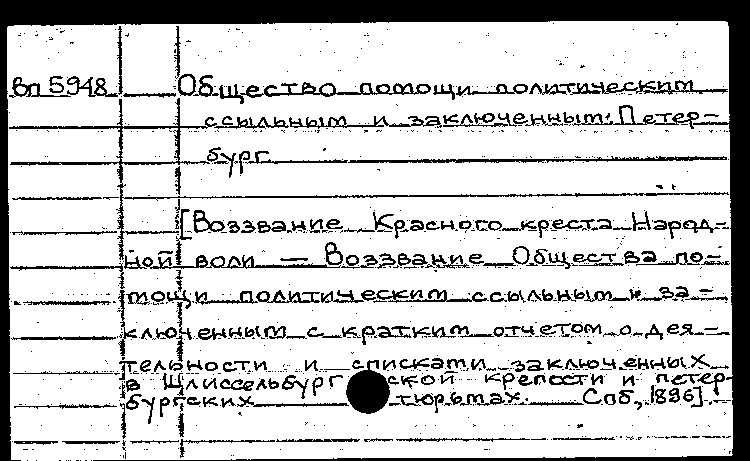 Вп 5948 Общество помощи политическим
ссыльным и заключенным. Петер-
бург.
[Воззвание Красного креста Народ-
ной воли — Воззвание Общества по-
мощи политическим ссыльным и за-
ключенным с кратким отчетом о дея-
тельности и списками заключенных
в Шлиссельбургской крепости и петер-
бургских тюрьмах. Спб, 1896].